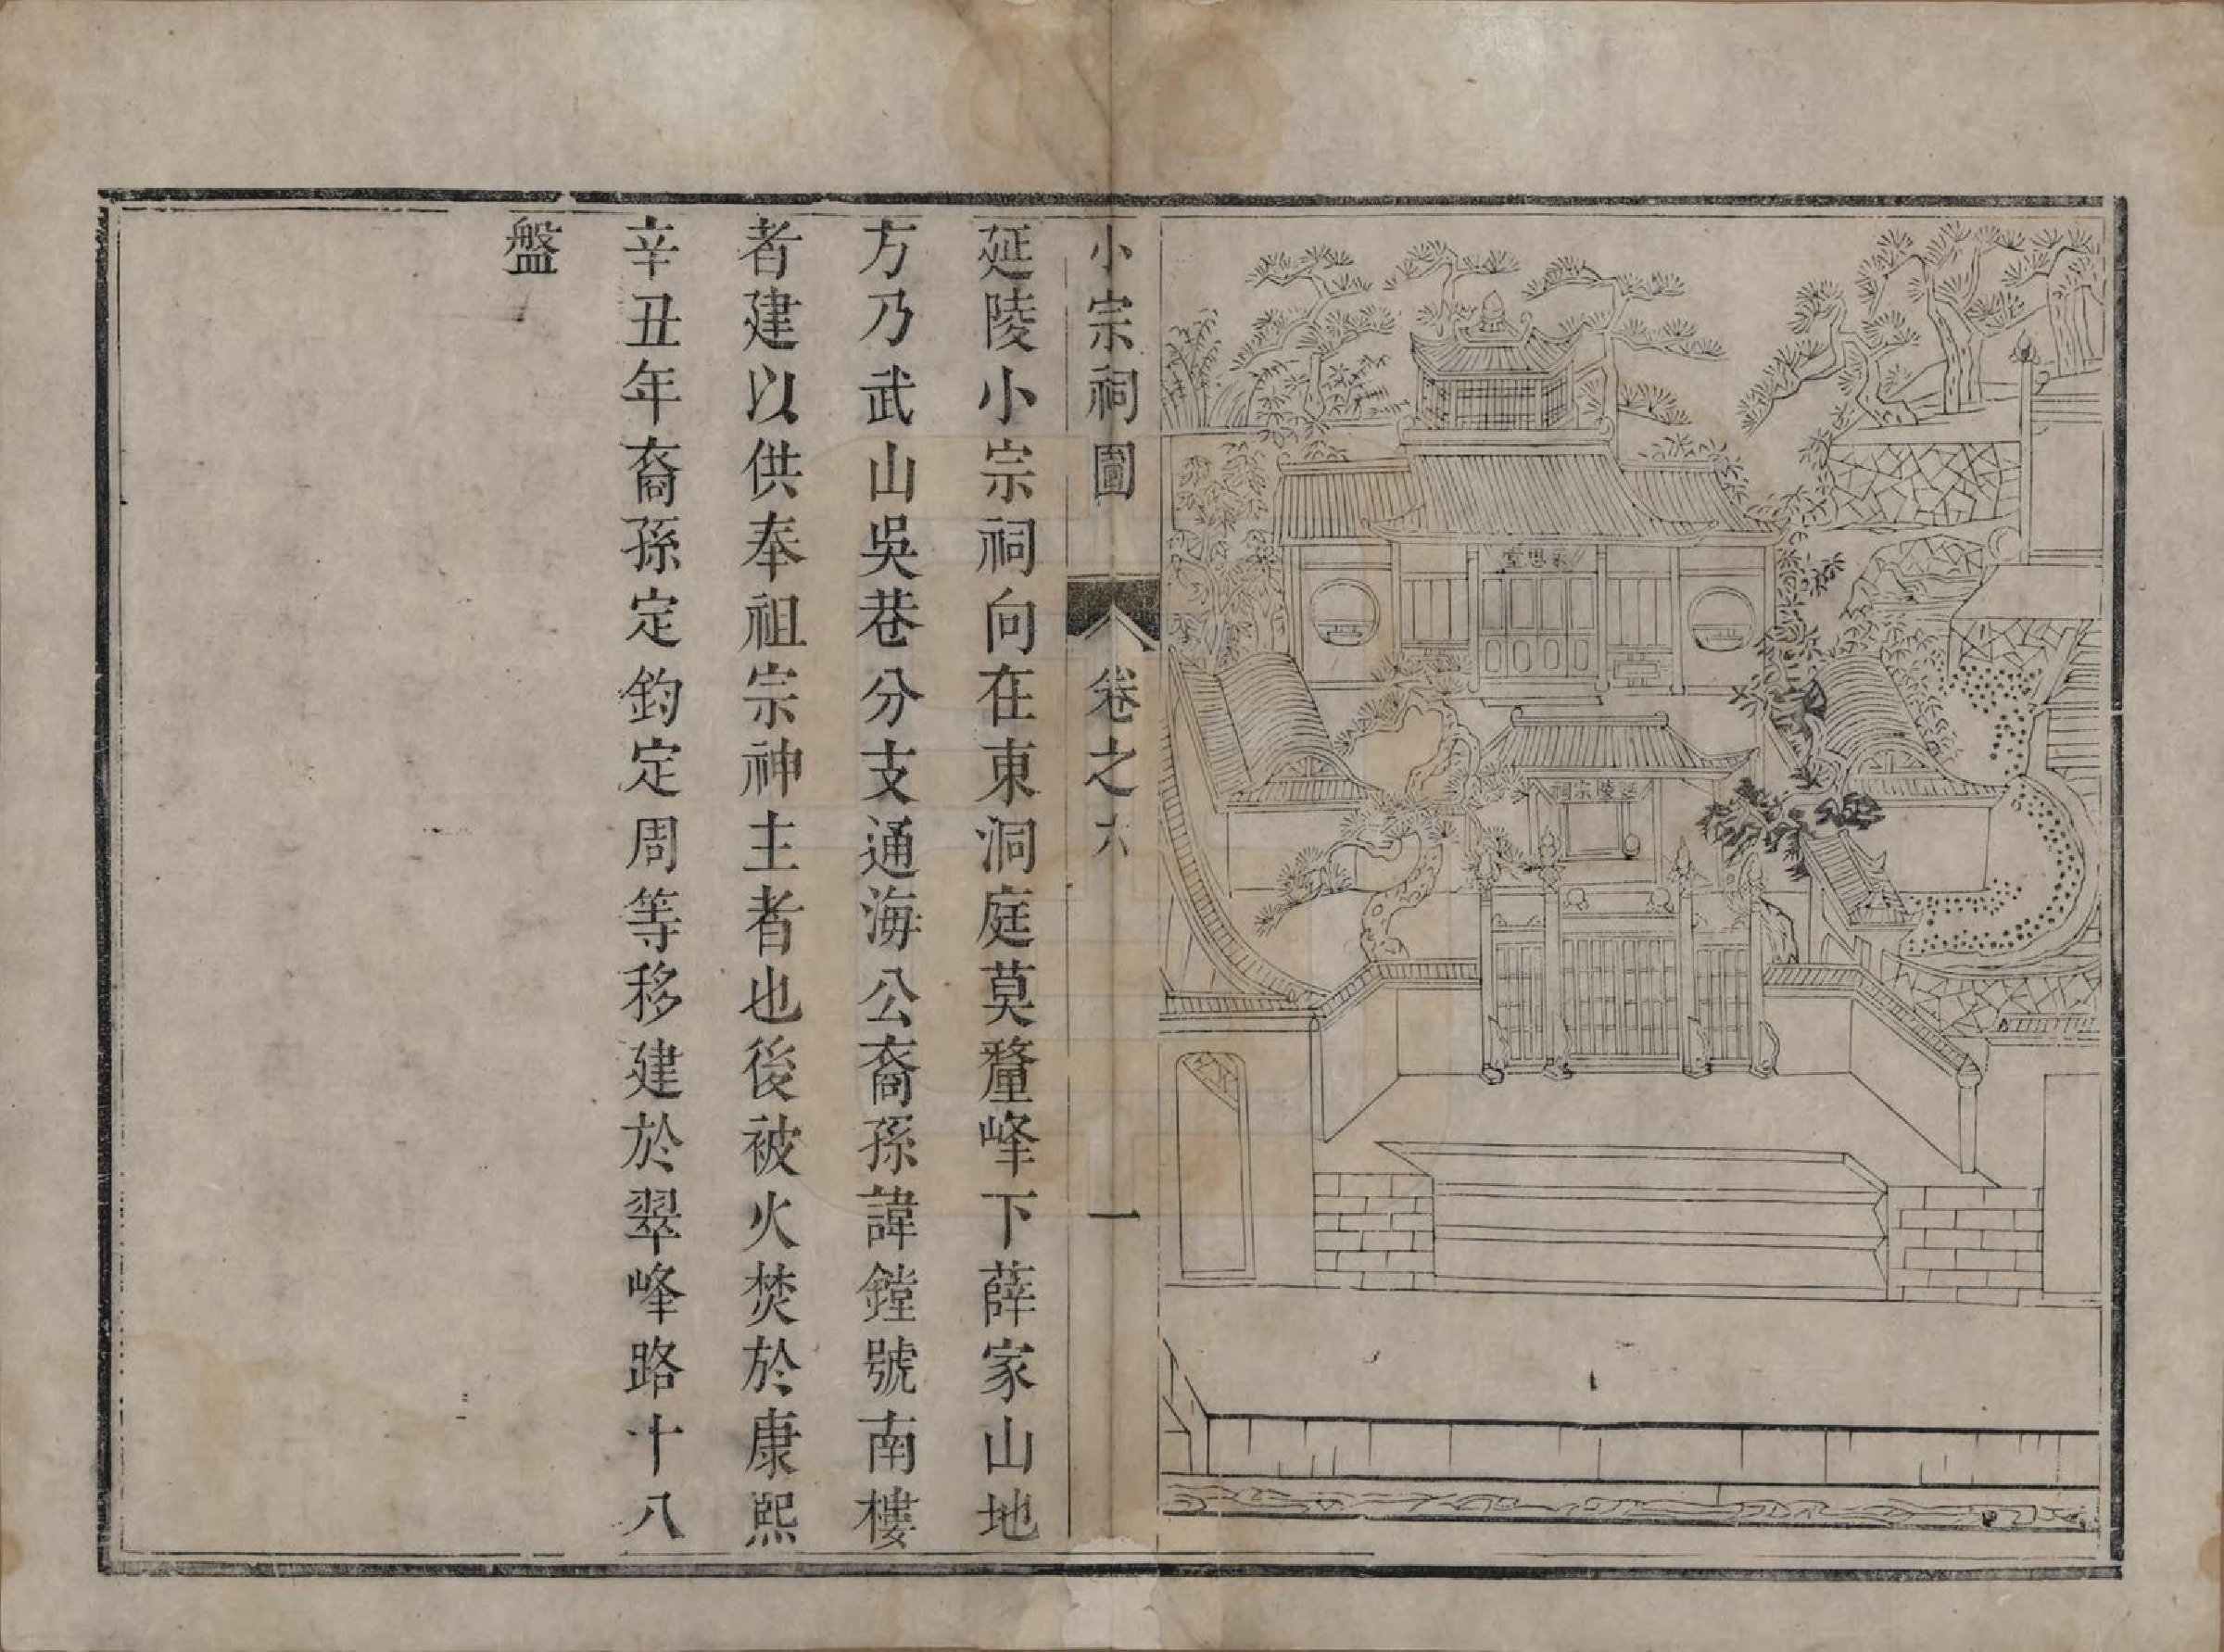 思堂
延陵宗祠
小宗祠圖 卷之六 一
延陵小宗祠向在東洞庭莫釐峰下薛家山地
方乃武山吳巷分支通海公裔孫諱鏜號南樓
者建以供奉祖宗神主者也後被火焚於康熙
辛丑年裔孫定鈞定周等移建於翠峰路十八
盤